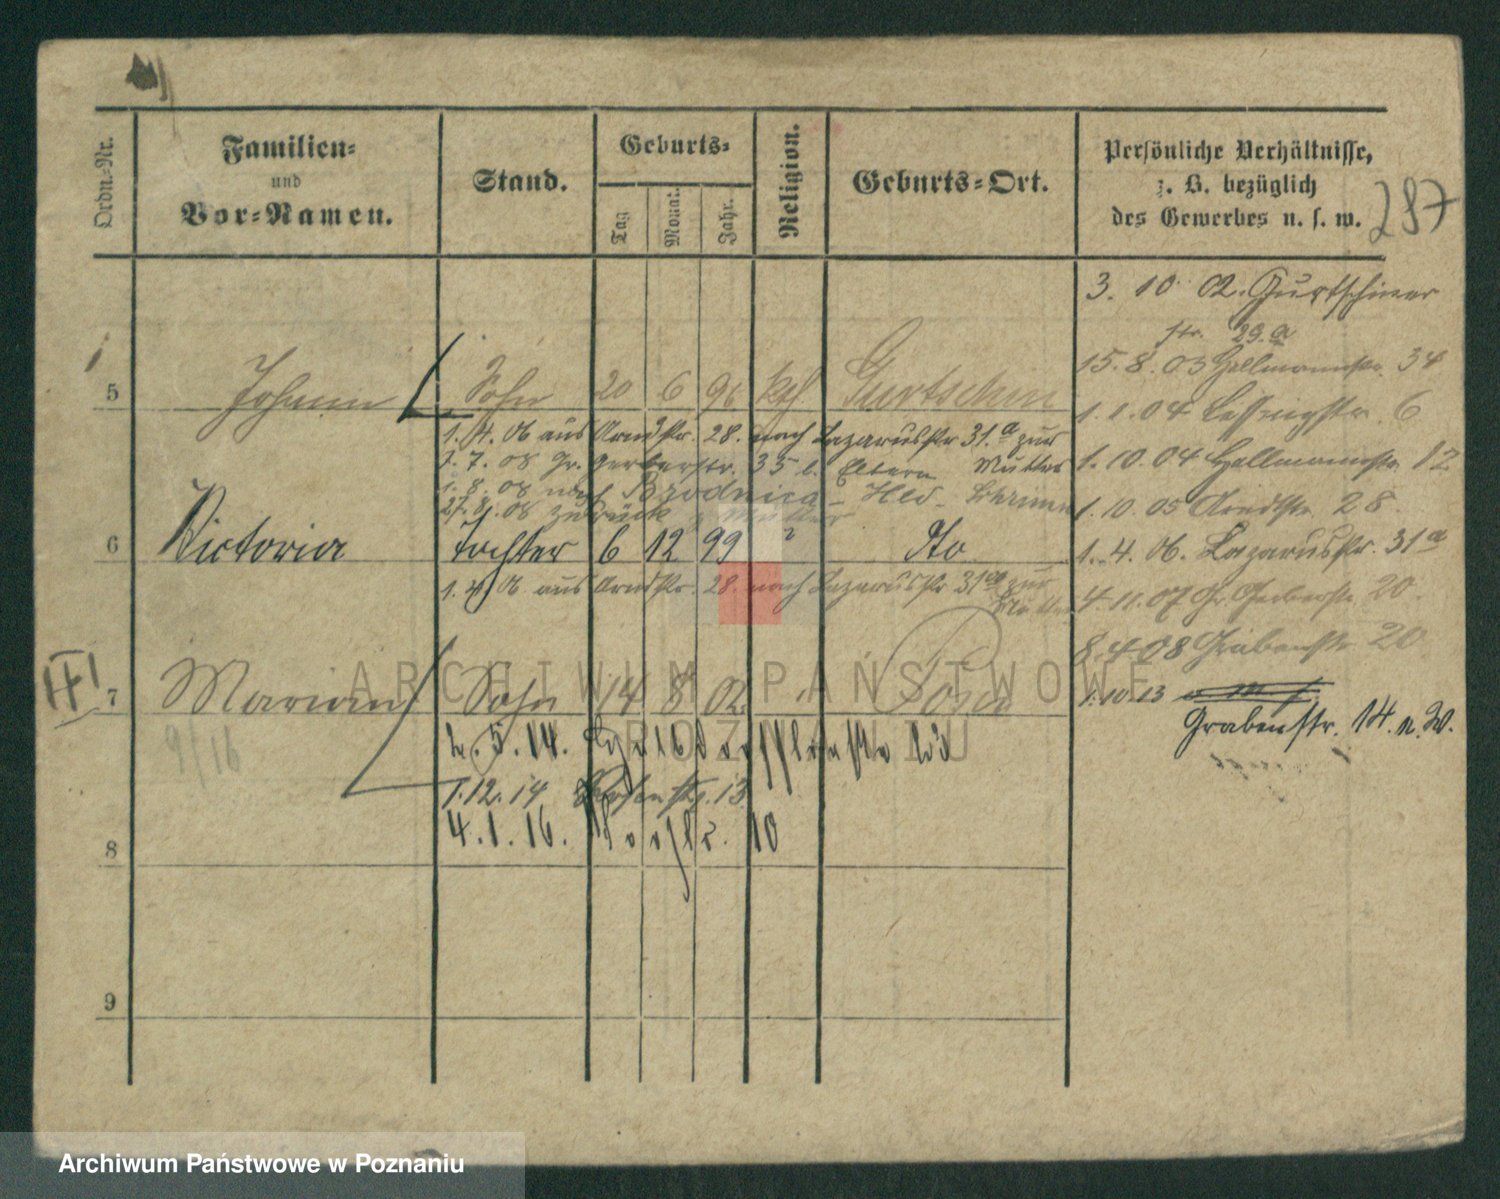 Ordn.-Nr.
Familien-
und
Vor-Namen.
Stand.
Geburts-
Tag
Monat.
Jahr.
Religion.
Geburts-Ort.
Persönliche Verhältnisse,
z. B. bezüglich
des Gewerbes u. s. w.
287
3. 10 02. Gurtschiner
str. 29.a
15. 8. 03 Hellmannstr. 34
5 Johann Sohn 20 6 96 kth Gurtschin
1. 1. 04 Lessingstr. 6
1. 4. 06 aus Arndtstr. 28. nach Lazarusstr 31.a zur
Mutter
7. 08 Gr. Gerberstr. 35 Eltern
1. 10. 04 Hellmannstr. 12
1. 8. 08 nach Brodnica
27. 08 zurück z. Mutter
1. 10. 05 Arndtstr. 28.
6 Victoria Tochter 6 12 99 " dto
1. 4. 06. Lazarusstr. 31a
1. 4. 06 aus Arndtstr. 28. nach Lazarusstr 31a zur
Mutter
4. 11. 07 Gr. Gerberstr. 20.
8. 4. 08 Grabenstr. 20
7 Marian Sohn 14 8 02. " Posen
1. 10. 13
Grabenstr. 14. n. W.
9/16
5. 14.
1. 12. 14 13
4. 1. 16. 10
8
9
ARCHIWUM PAŃSTWOWE
W POZNANIU
Archiwum Państwowe w Poznaniu